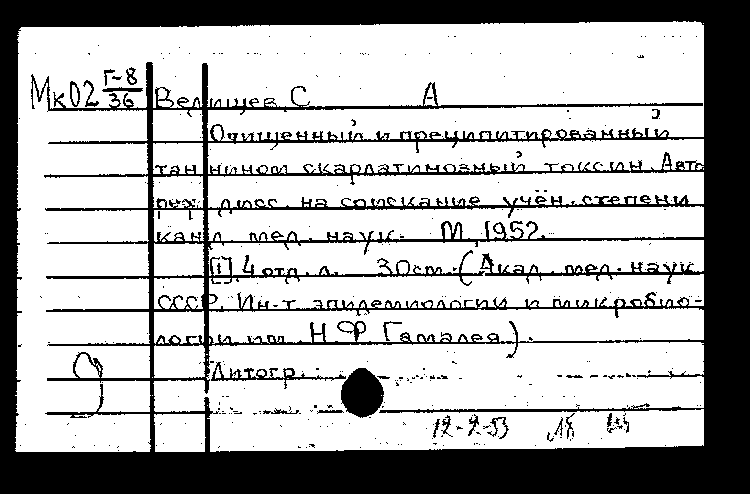 Мк02 Г-8/36 Велищев, С А
Очищенный и преципитированный
таннином скарлатинозный токсин. Авто
реф. дисс. на соискание учён. степени
канд. мед. наук. М., 1952.
[1], 4 отд. л. 30 см. (Акад. мед. наук
СССР. Ин-т эпидемиологии и микробио-
логии им. Н Ф Гамалея).
Литогр.
9
12-2-53 Л8